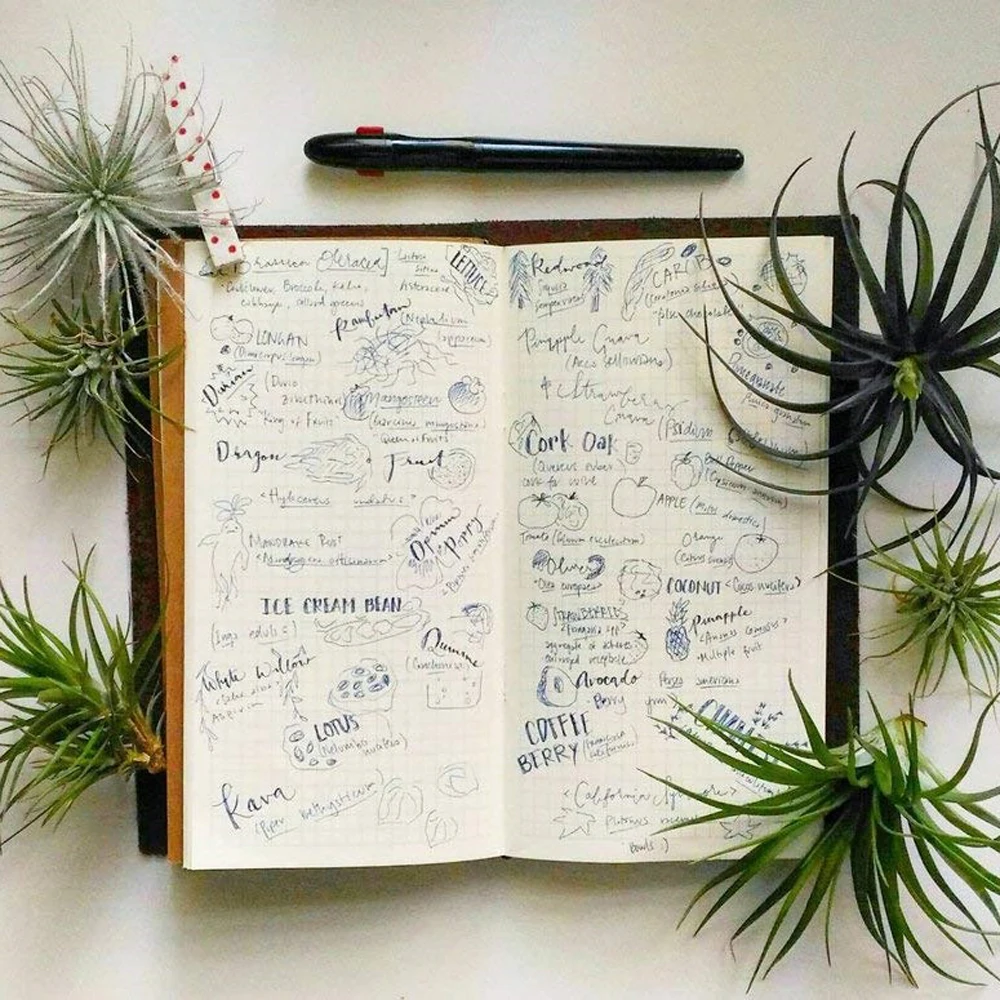 Oleracea]
Lettuce
LETTUCE
Asteraceae
Cauliflower, Broccoli, Kale,
cabbage, collard greens
Rambutan
(Nephelium
lappaceum)
LONGAN
(Dimocarpus longan)
Durian
(Durio
King of Fruits
Mangosteen
(Garcinia mangostana)
Queen of fruits
Dragon Fruit
<Hylocereus undatus>
MANDRAKE ROOT
<Mandragora officinarum>
Opium
Poppy
ICE CREAM BEAN
(Inga edulis)
White Willow
<Salix alba>
Quinine
LOTUS
(Nelumbo nucifera)
Kava
(Piper methysticum)
Redwood
Sequoia
sempervirens
CAROB
false chocolate
Pineapple Guava
(Acca sellowiana)
& Strawberry
Guava (Psidium
Pomegranate
Punica granatum
Cork Oak
(Quercus suber)
cork for wine
Bell Pepper
APPLE (Malus domestica)
Tomato
Orange
Olive
<Olea europaea>
COCONUT <Cocos nucifera>
STRAWBERRIES
<Fragaria spp>
aggregate of achenes
enlarged receptacle
Pineapple
<Ananas comosus>
Multiple fruit
Avocado Persea americana
Berry
COFFEE
BERRY
<California Sycamore>
Platanus racemosa
Bowls :)